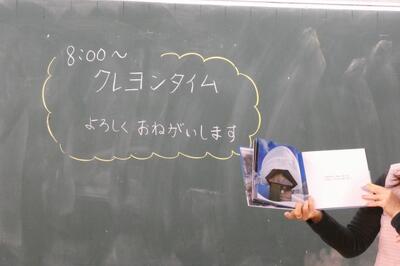 8:00～
クレヨンタイム
よろしく おねがいします